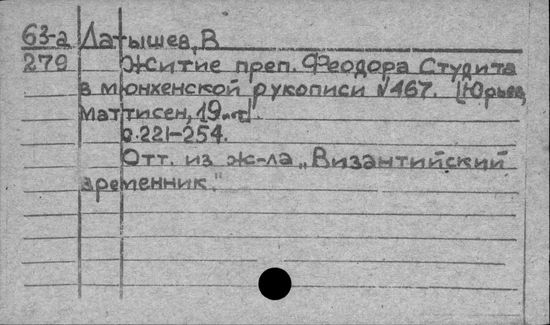 63-а Латышев, В
279 Житие преп. Феодора Студита
в мюнхенской рукописи №467. [Юрьев,
маттисен, 19
с.221-254.
Отт. из ж-ла „Византийский
временник."